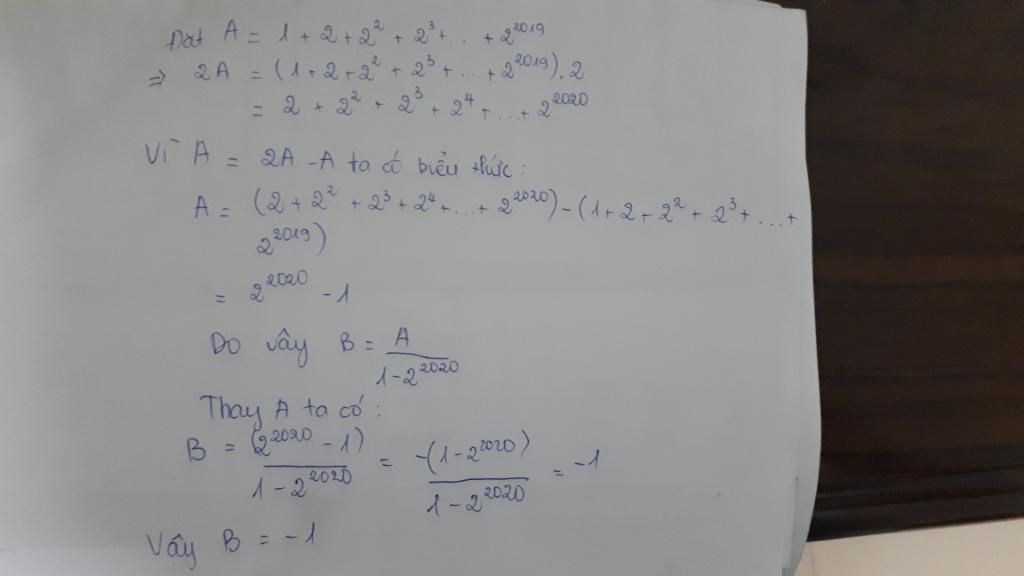 Đặt A = 1 + 2 + 2² + 2³ + ... + 2²⁰¹⁹
⇒ 2A = (1 + 2 + 2² + 2³ + ... + 2²⁰¹⁹).2
= 2 + 2² + 2³ + 2⁴ + ... + 2²⁰²⁰
Vì A = 2A - A ta có biểu thức:
A = (2 + 2² + 2³ + 2⁴ + ... + 2²⁰²⁰) - (1 + 2 + 2² + 2³ + ... +
2²⁰¹⁹)
= 2²⁰²⁰ - 1
Do vậy B = A / (1 - 2²⁰²⁰)
Thay A ta có:
B = (2²⁰²⁰ - 1) / (1 - 2²⁰²⁰) = -(1 - 2²⁰²⁰) / (1 - 2²⁰²⁰) = -1
Vậy B = -1